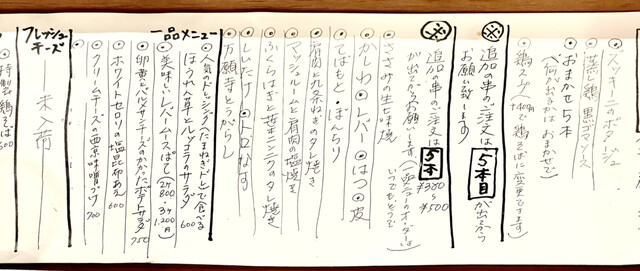 ◉ズッキーニのポタージュ
◉蒸し鶏 黒ゴマソース
◉おまかせ5本
(何が出るかは おまかせで)
◉鶏スープ(+400円で 鶏そばに変更できます)
㊍ 追加の串のご注文は 5本目 が出てから
お願い致します
㊍ 追加の串のご注文は 5本
が出てからお願いします
いつでもどうぞ
¥380
¥500
◉ささみの生七味焼
◉かしわ ◉レバー ◉はつ ◉皮
◉てばもと・ぼんじり
◉肩肉と九条ねぎのタレ焼き
◉マッシュルームと肩肉の塩焼き
◉ふくらはぎと茎ニンニクのタレ焼き
◉しいたけ ◉トロなす
◉万願寺とうがらし
一品メニュー
◉人気のドレッシング(たまねぎドレ)で食べる
ほうれん草とルッコラのサラダ 600
◉美味しいレバームースぱて (2ケ 800・3ケ 1,200円)
◉卵黄とペルメザンチーズのかかったポテトサラダ 750
◉ホワイトセロリの塩昆布あえ 600
◉クリームチーズの西京味噌づけ 700
フレッシュチーズ
未入荷
◉特製 鶏そば